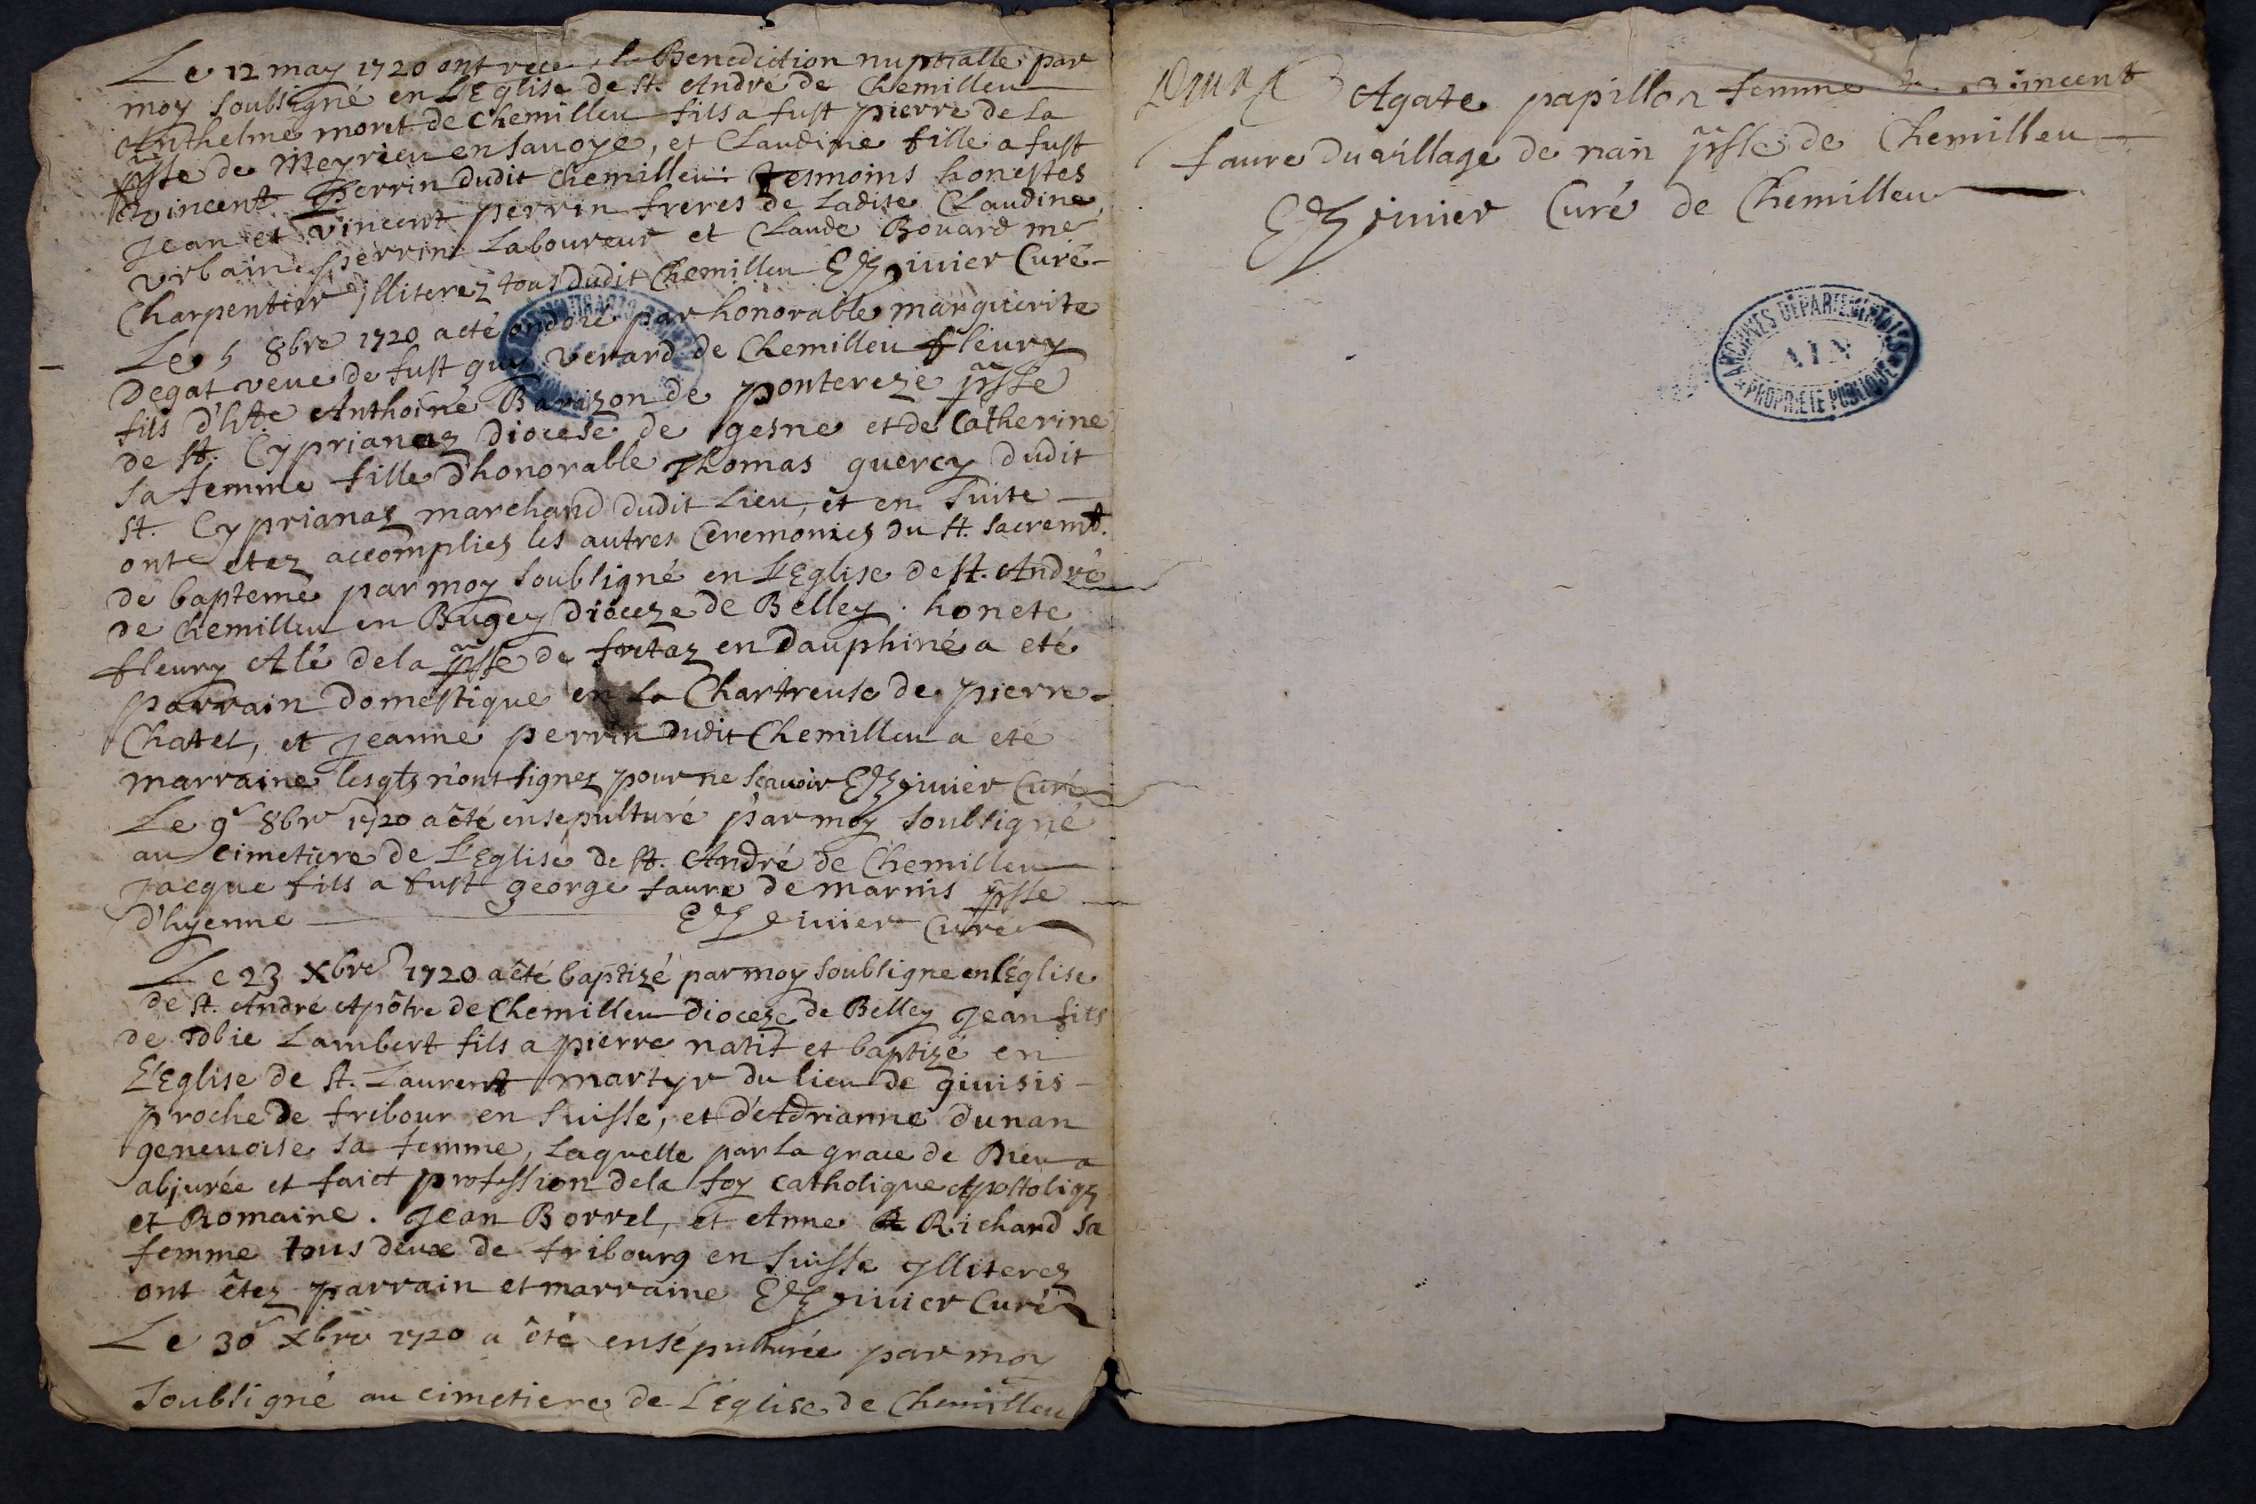 Le 12 may 1720 ont receu la Benediction nuptialle par
moy soubsigné en L'Eglise de st. André de Chemilleu
Anthelme moret de Chemilleu fils a fust pierre de la
psse de Meyrieu en savoye, et Claudine fille a fust
vincent Perrin dudit Chemilleu: Tesmoins honestes
Jean et vincent perrin freres de ladite Claudine,
urbain perrin Laboureur et Claude Bouard me
Charpentier jlliterez tous dudit Chemilleu Curé
Le 5 8bre 1720 a eté ondoié par honorable marguerite
Degat veue de fust guy verard de Chemilleu fleury
fils d'hte Anthoine Barizon de ponterezé psse
de st. Cyprianaz Diocese de gesne et de Catherine
sa femme fille d'honorable Thomas quercy dudit
st. Cyprianaz marchand dudit Lieu, et en suite
ont etez accomplies les autres Ceremonies du st. sacremt.
de bapteme par moy soubsigné en L'Eglise de st. André
de Chemilleu en Bugey Dioceze de Belley. honete
fleury Alé de la psse de fretaz en Dauphiné a eté
parrain domestique en La Chartreuse de pierre-
Chatel, et jeanne perrin dudit Chemilleu a eté
marraine lesqts n'ont signez pour ne scavoir Curé
Le 9e 8bre 1720 a êté ensepulturé par moy soubsigné
au cimetiere de L'Eglise de st. André de Chemilleu
Jacque fils a fust george faure de marnis psse
d'hyenne Curé
Le 23 Xbre 1720 a êté baptizé par moy soubsigne en l'Église
de st. André Apôtre de Chemilleu dioceze de Belley jean fils
de Tobie Lambert fils a pierre natif et baptizé en
L'Eglise de st. Laurent martyr du lieu de givisis
proche de fribour en suisse, et d'Adrianne dunan
genevoise sa femme, Laquelle par la grace de Dieu a
abjurée et faict profession de la foy catholique Apostoliqz
et Romaine. Jean Borrel, et Anne Richard sa
femme tous deux de fribourg en suisse ylliterez
ont êtez parrain et marraine Curé
Le 30e Xbre 1720 a êté ensépulturée par moy
soubsigné au cimetiere de L'Église de Chemilleu
Agate papillon femme vincent
faure du village de nan psse de Chemilleu
Curé de Chemilleu
ARCHIVES DÉPARTEMENTALES
AIN
PROPRIÉTÉ PUBLIQUE